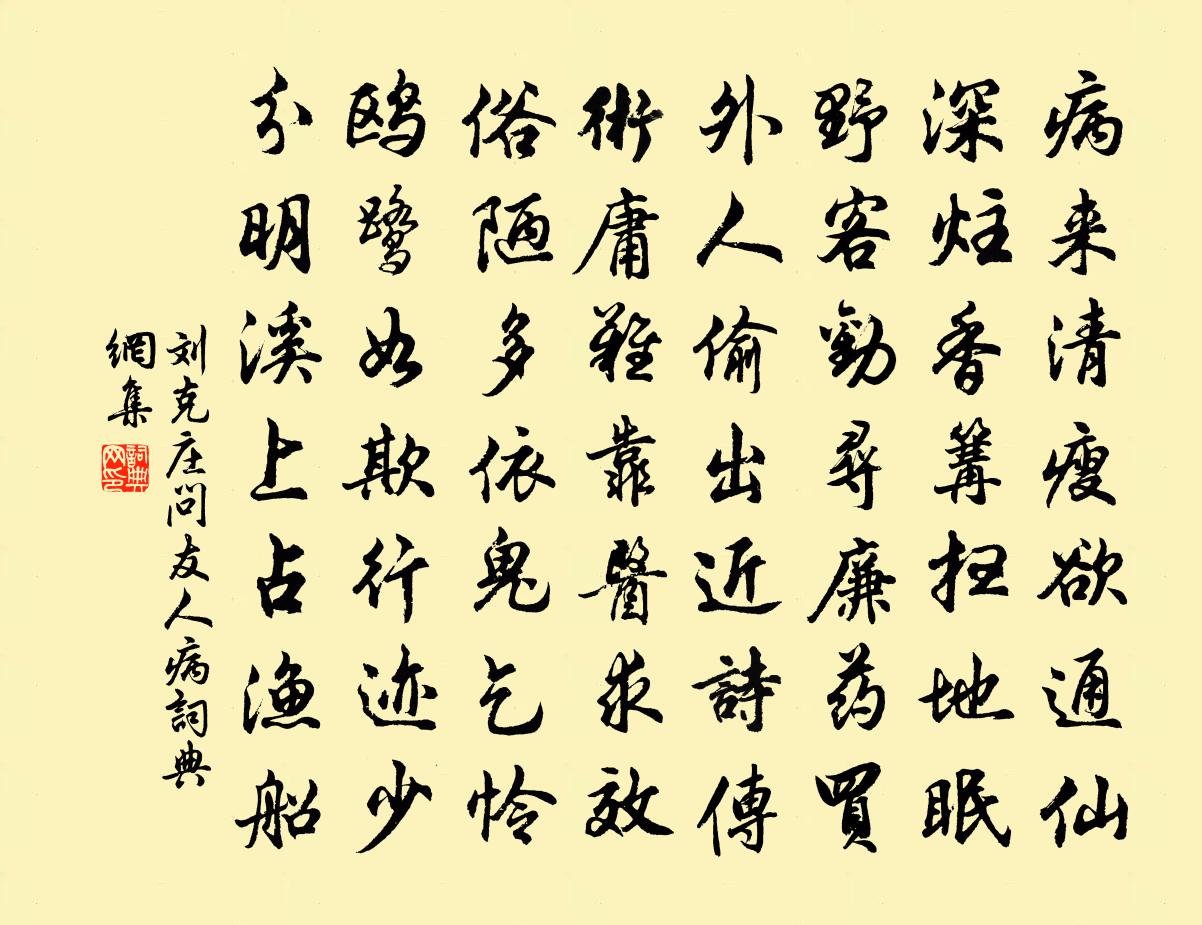 病来清瘦欲通仙
深炷香篝扫地眠
野客勸尋廉药買
外人偷出近詩傳
術庸難靠醫求效
俗陋多依鬼乞怜
鸥鹭如欺行迹少
分明溪上占漁船
刘克庄问友人病詞典
網集
詞典
网印